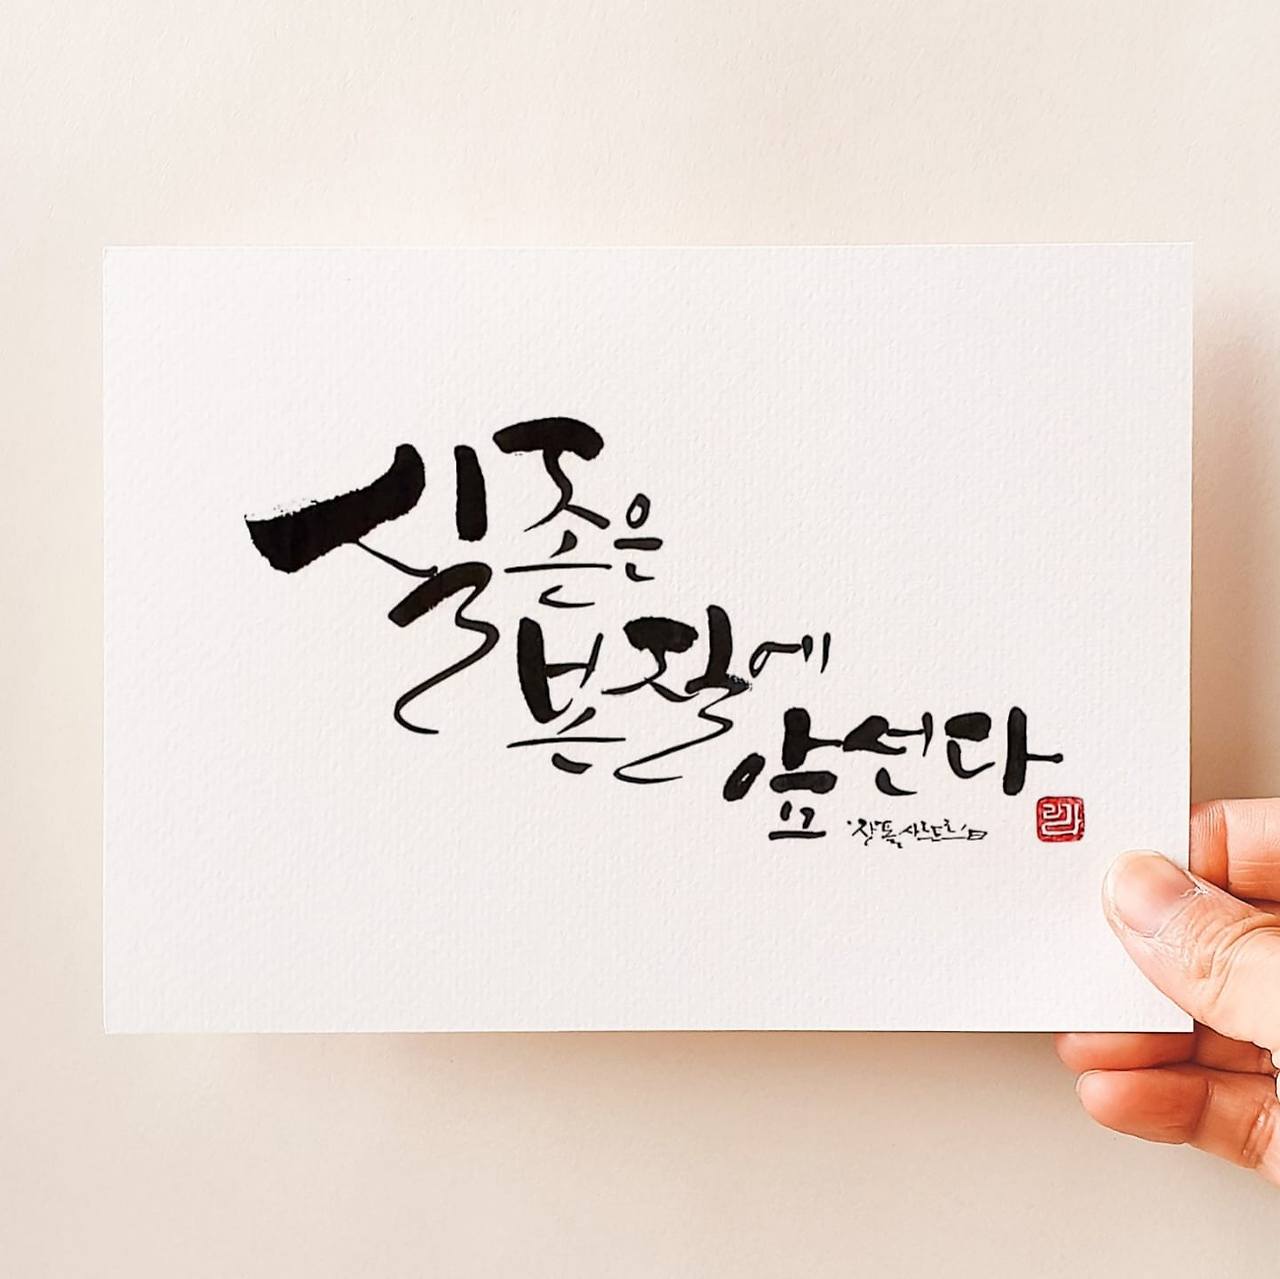 실존은
본질에
앞선다
장폴 사르트르